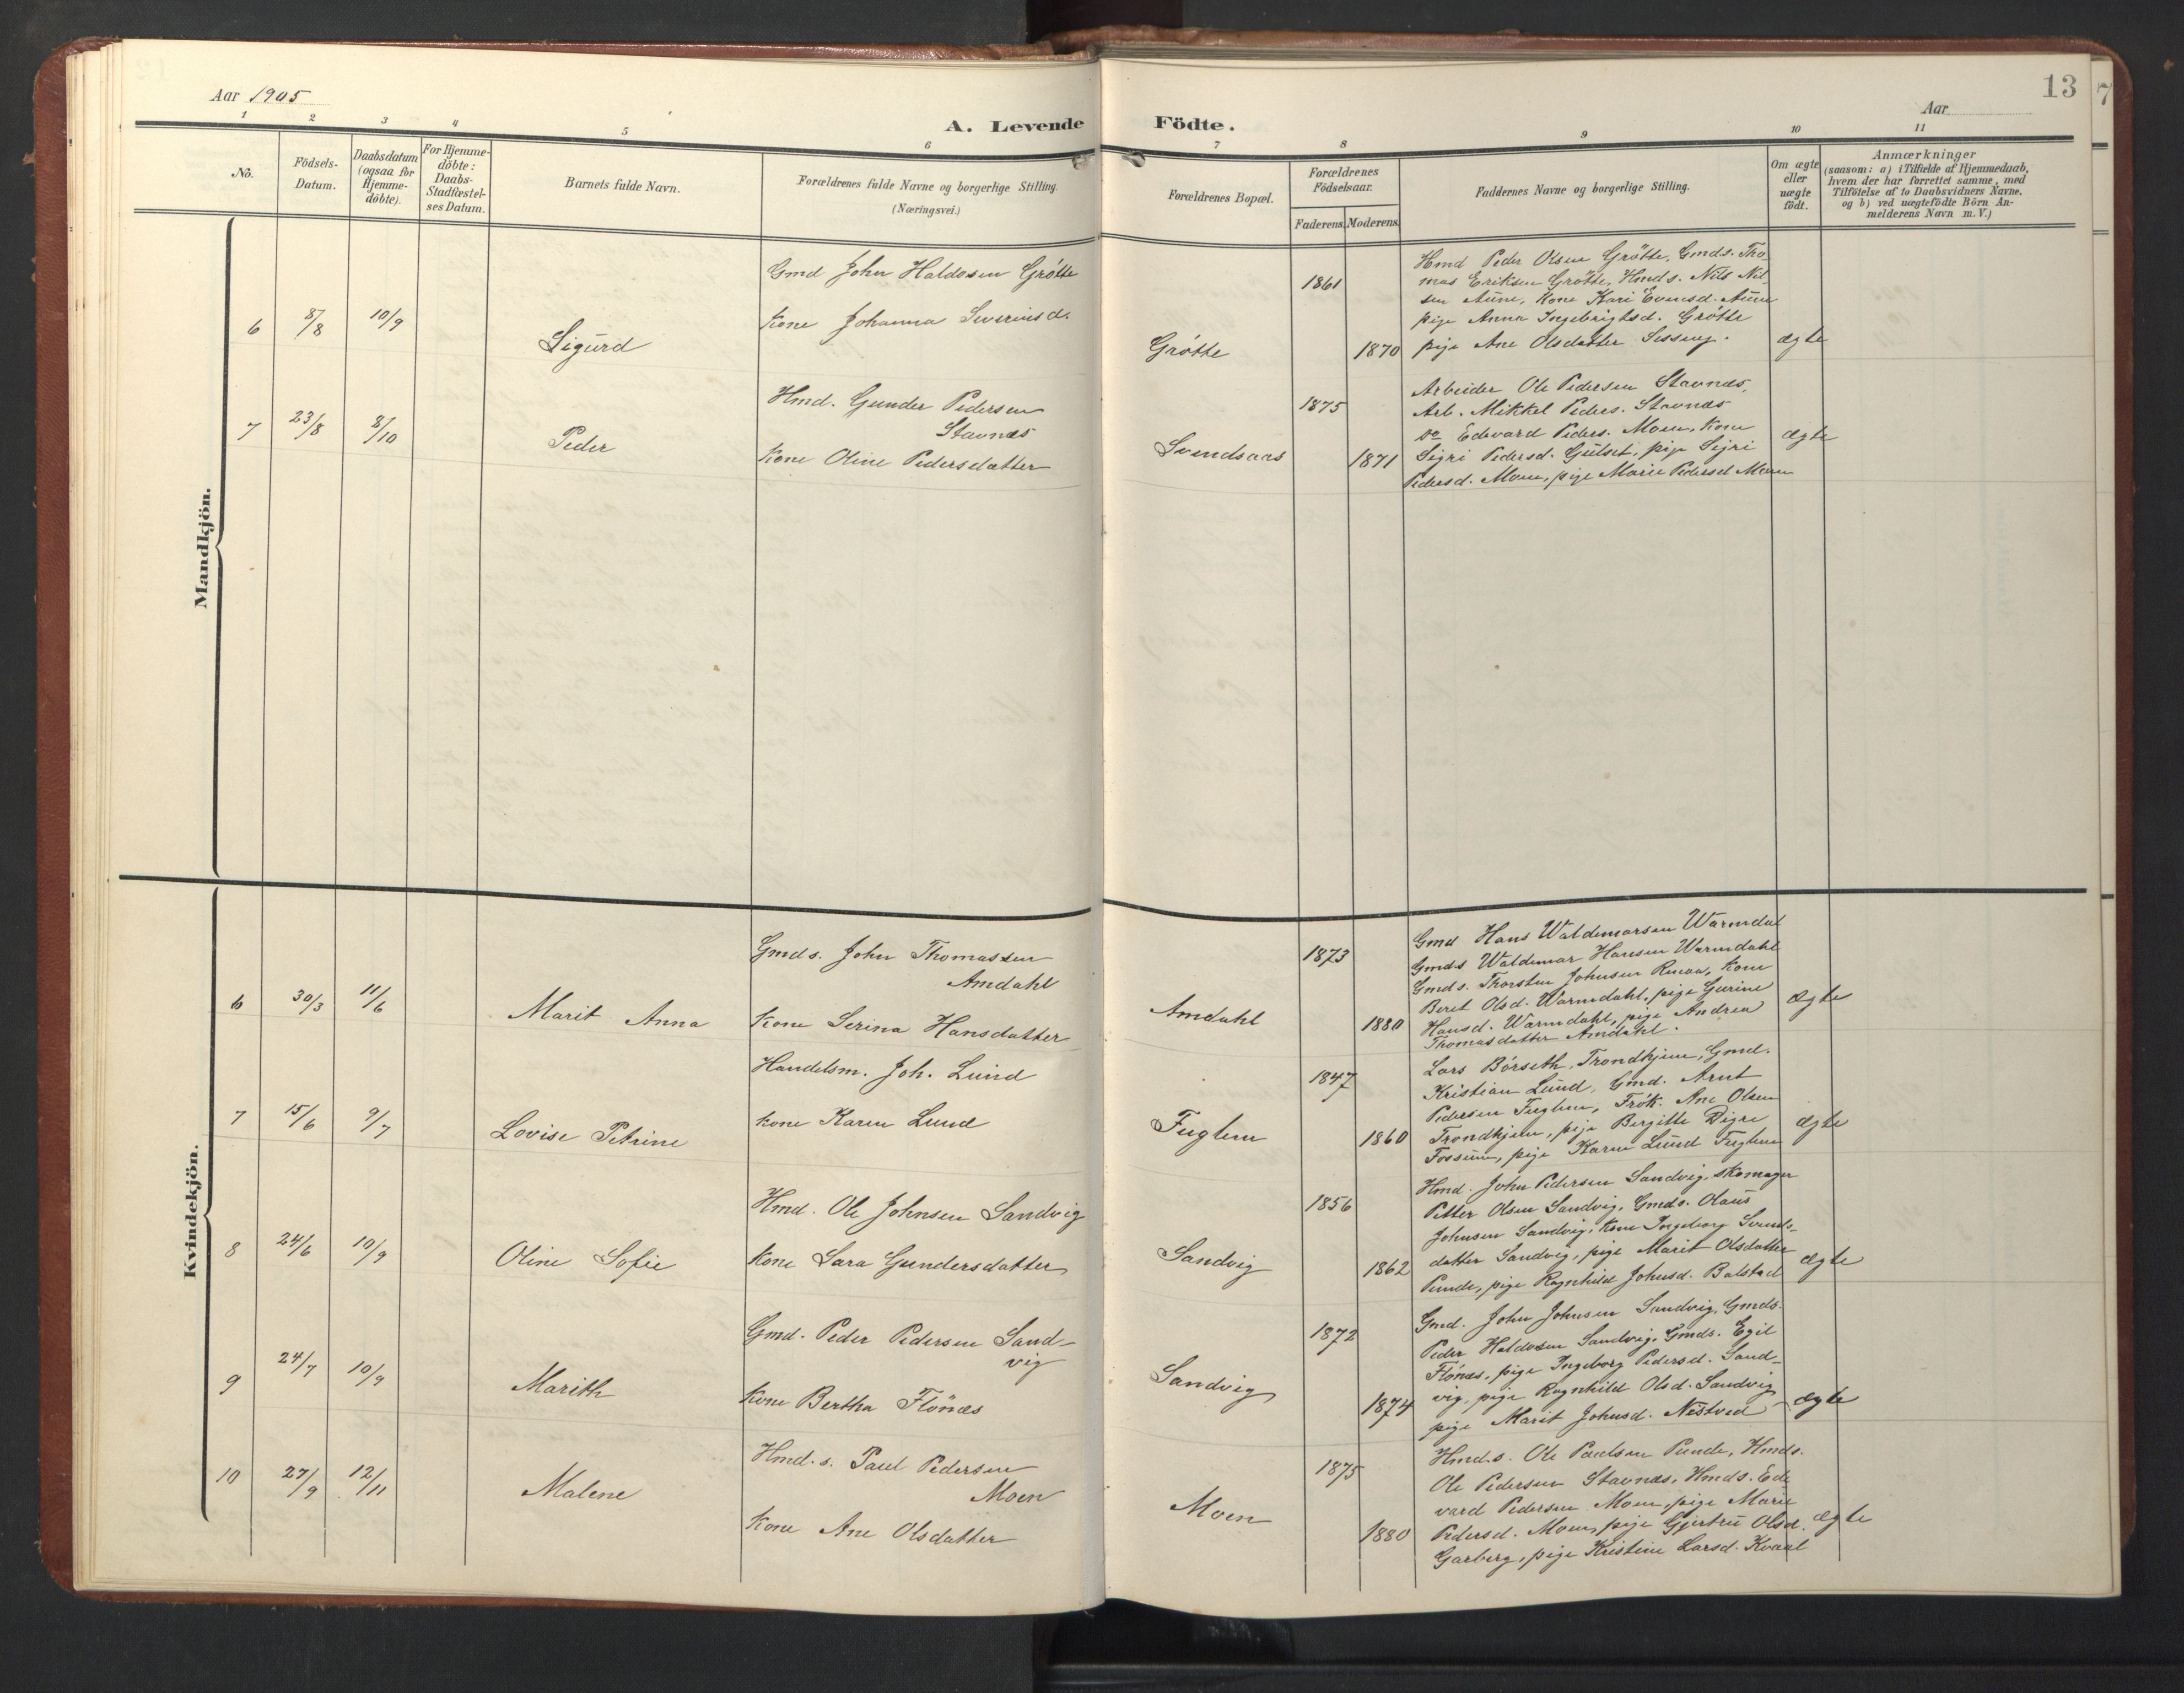 Aar 1905
A. Levende Födte.
Aar
13
7
1 2 3 4 5 6 7 8 9 10 11
No.
Födsels-
Datum.
Daabsdatum
(ogsaa for
Hjemme-
döbte).
For Hjemme-
döbte:
Daabs-
Stadfæstel-
ses Datum.
Barnets fulde Navn.
Forældrenes fulde Navne og borgerlige Stilling.
(Næringsvei.)
Forældrenes Bopæl.
Forældrenes
Födselsaar.
Faderens. Moderens.
Faddernes Navne og borgerlige Stilling.
Om ægte
eller
uægte
födt.
Anmærkninger
(saasom: a) i Tilfælde af Hjemmedaab,
hvem der har forrettet samme, med
Tilföielse af to Daabsvidners Navne.
og b) ved uægtefödte Börn An-
melderens Navn m. V.)
Mandkjön.
6 8/8 10/9 Sigurd
Gmd John Haldosen Grötte
Kone Johanna Severinsd.
Grötte 1861 1870
Hmd Peder Olsen Grötte, Gmds. Tho
mas Eriksen Grötte, Hmds. Nils Nil-
sen Aune, Kone Kari Evensd. Aune
pige Anna Ingebrigtsd. Grötte
pige Ane Olsdatter
ægte
7 23/8 8/10 Peder
Hmd. Gunder Pedersen
Stavnæs
Kone Oline Pedersdatter
Svendsaas 1875 1871
Arbeider Ole Pedersen Stavnæs,
Arb. Mikkel Peders. Stavnæs
do Edevard Peders. Moen, Kone
Sigri Pedersd. Gulset, pige Sigri
Pedersd. Moen, pige Marie Pedersd Moen
ægte
Kvindekjön.
6 30/3 11/6 Marit Anna
Gmds. John Thomassen
Amdahl
Kone Serina Hansdatter
Amdahl 1873 1880
Gmd Hans Waldemarsen Warmdal
Gmds Waldemar Hansen Warmdahl
Gmds. Thorsten Johnsen Renaa, Kone
Beret Olsd. Warmdahl, pige Gurine
Hansd. Warmdahl, pige Andrea
Thomasdatter Amdahl.
ægte
7 15/6 9/7 Lovise Petrine
Handelsm. Joh. Lund
Kone Karen Lund
Fuglem 1847 1860
Lars Börseth, Trondhjem, Gmd.
Kristian Lund, Gmd. Arnt
Pedersen Fuglem, Frök. Ane Olsen
Trondhjem, pige Bergitte Digre
Fossum, pige Karen Lund Fuglem
ægte
8 24/6 10/9 Oline Sofie
Hmd. Ole Johnsen Sandvig
Kone Sara Gundersdatter
Sandvig 1856 1862
Hmd. John Pedersen Sandvig, skomager
Petter Olsen Sandvig, Gmds. Olaus
Johnsen Sandvig, Kone Ingeborg Svends-
datter Sandvig, pige Marit Olsdatter
Runde, pige Ragnhild Johnsd. Balstad
ægte
9 24/7 10/9 Marith
Gmd. Peder Pedersen Sand-
vig
Kone Bertha Flönæs
Sandvig 1872 1874
Gmd. John Johnsen Sandvig, Gmds.
Peder Haldosen Sandvig, Gmds. Egil
Flönæs, pige Ingeborg Pedersd. Sand-
vig, pige Ragnhild Olsd. Sandvig
pige Marit Johnsd. Nestved
ægte
10 27/9 12/11 Malene
Hmd.s. Paul Pedersen
Moen
Kone Ane Olsdatter
Moen 1875 1880
Hmd.s. Ole Paulsen Runde, Hmds.
Ole Pedersen Stavnæs, Hmds. Ede
vard Pedersen Moen, pige Marie
Pedersd. Moen, pige Gjertru Olsd.
Garberg, pige Kristine Larsd. Kvaal
ægte